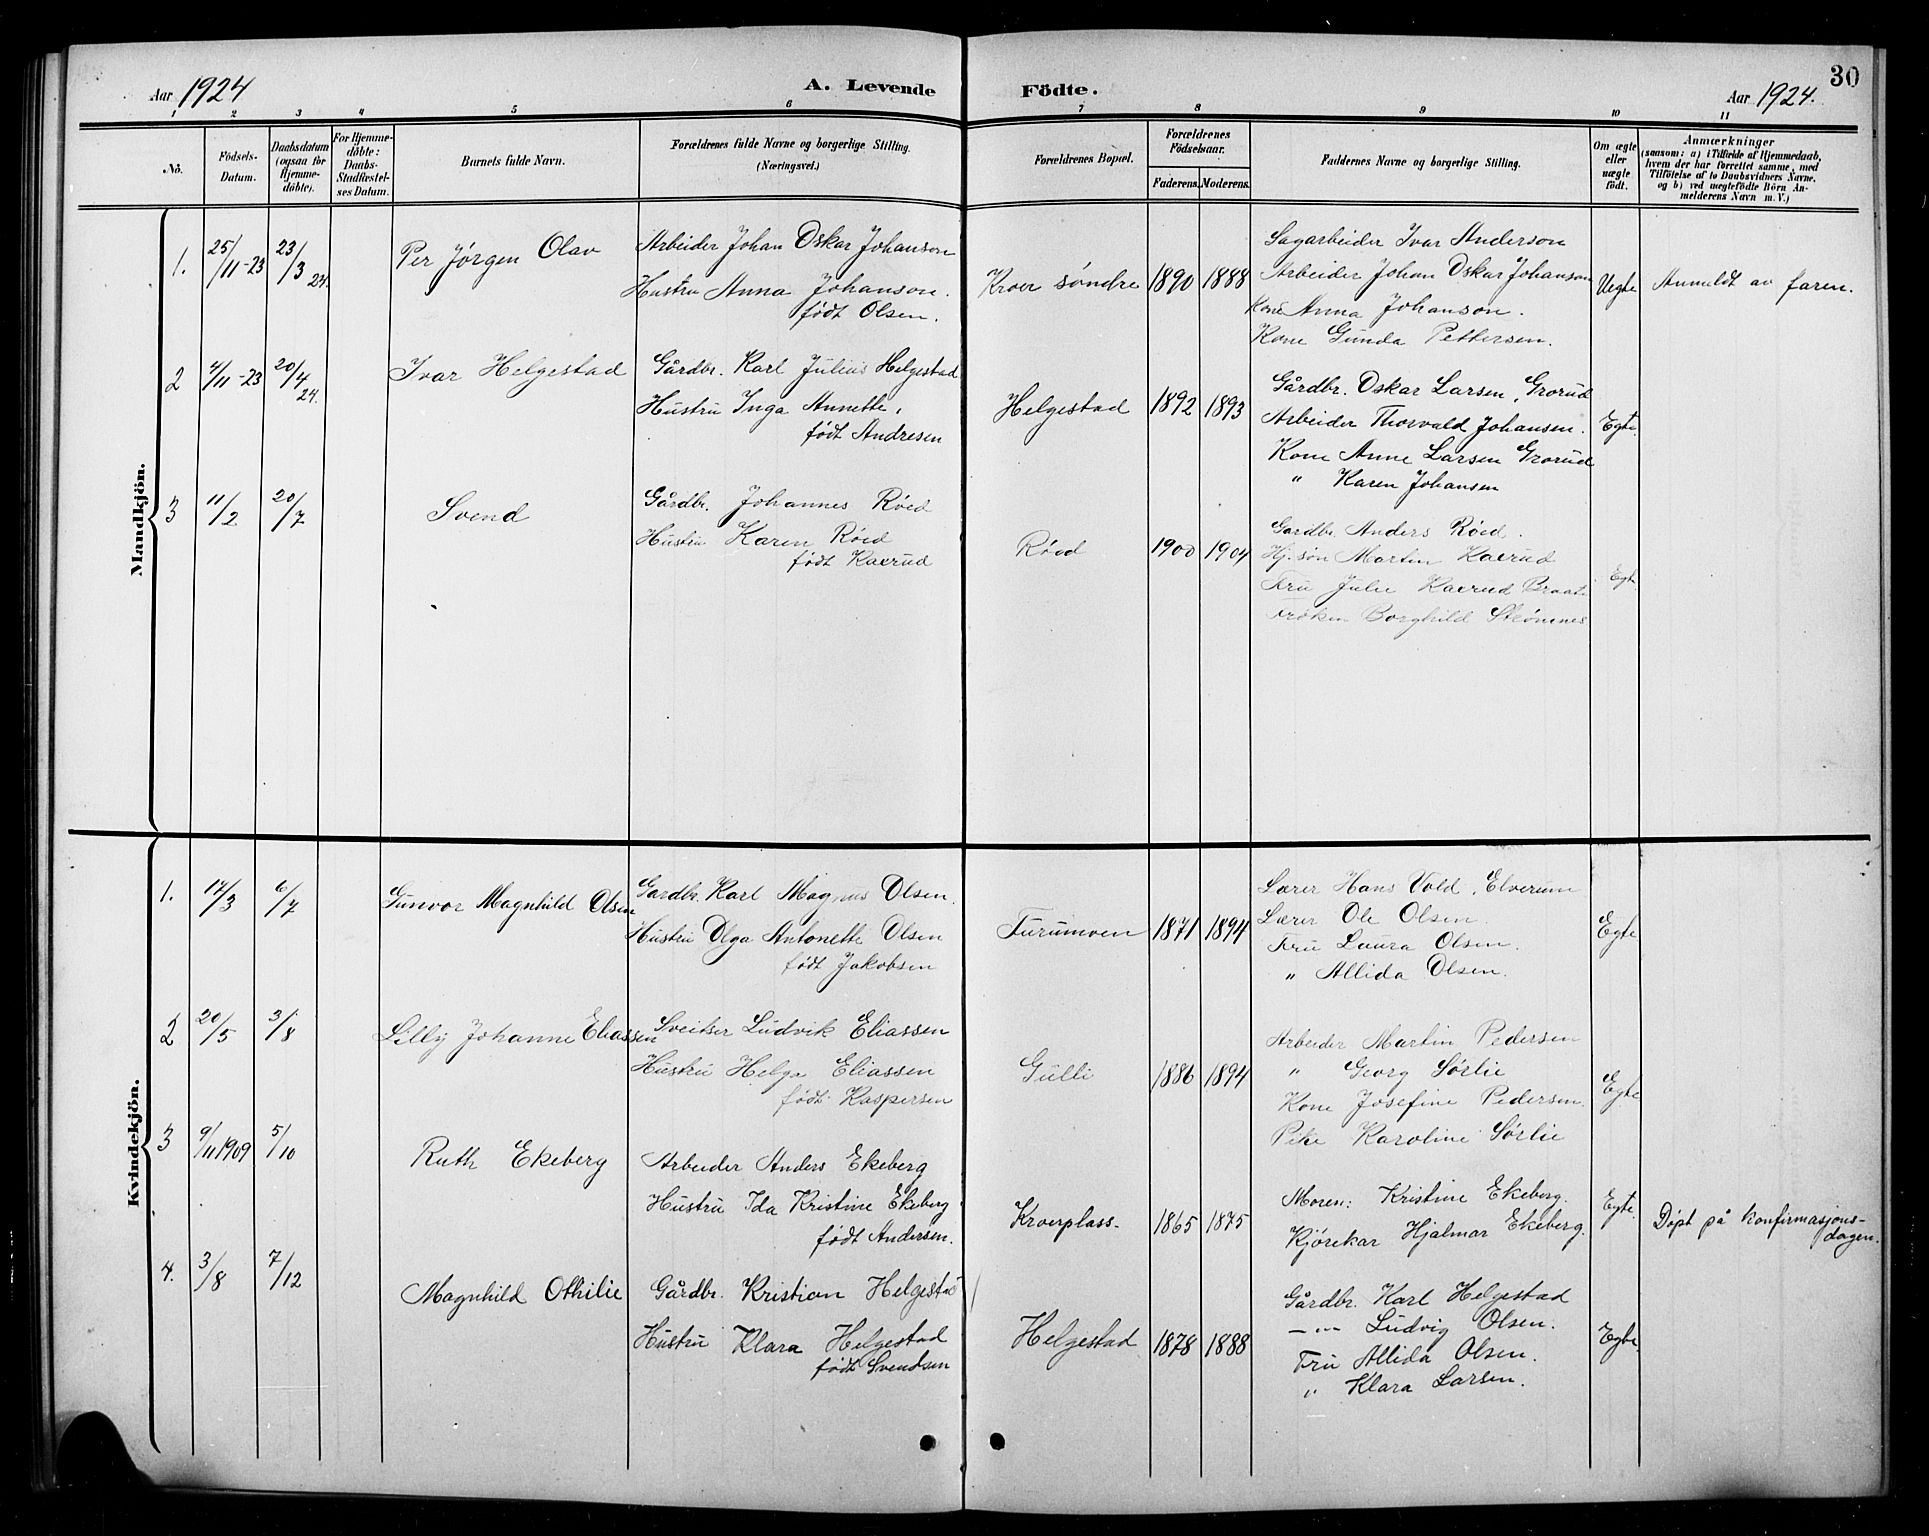 Aar 1924
A. Levende Födte.
Aar 1924.
30
1 2 3 4 5 6 7 8 9 10 11
Nö.
Födsels-Datum.
Daabsdatum (ogsaa for Hjemme-döbte).
For Hjemme-döbte: Daabs-Stadfæstel-ses Datum.
Barnets fulde Navn.
Forældrenes fulde Navne og borgerlige Stilling. (Næringsvei.)
Forældrenes Bopæl.
Forældrenes Födselsaar.
Faderens. Moderens.
Faddernes Navne og borgerlige Stilling.
Om ægte eller uægte födt.
Anmærkninger
(saasom: a) i Tilfælde af Hjemmedaab,
hvem der har forrettet samme, med
Tilföielse af to Daabsvidners Navne,
og b) ved uegtefödte Börn An-
melderens Navn m. V.)
Mandkjön.
1. 25/11-23 23/3 24. Per Jørgen Olav
Arbeider Johan Oskar Johanson
Hustru Anna Johanson.
født Olsen.
Kroer søndre 1890 1888
Sagarbeider Ivar Anderson
Arbeider Johan Oskar Johanson
Kone Anna Johanson.
Kone Gunda Pettersen.
Uegte Anmeldt av faren.
2 4/11-23 20/4 24. Ivar Helgestad
Gårdbr. Karl Julius Helgestad
Hustru Inga Annette,
født Andresen
Helgestad 1892 1893
Gårdbr. Oskar Larsen, Grorud
Arbeider Thorvald Johansen.
Kone Anne Larsen Grorud
" Karen Johansen
Egte.
3 11/2 20/7 Svend
Gårdbr. Johannes Røed
Hustru Karen Røed
født Kaxrud
Røed 1900 1904
Gardbr. Anders Røed.
Hj. søn Martin Kaxrud
Fru Julie Kaxrud Braat
Frøken Borghild Strømnes
Egte
Kvindekjön.
1. 17/3 6/7 Gunvor Magnhild Olsen
Gardbr. Karl Magnus Olsen.
Hustru Olga Antonette Olsen
født Jakobsen
Furumoen 1871 1894
Lærer Hans Vold, Elverum
Lærer Ole Olsen
Fru Laura Olsen.
" Allida Olsen.
Egte
2 20/5 3/8 Lilly Johanne Eliassen
Sveitser Ludvik Eliassen
Hustru Helga Eliassen
født Kaspersen
Gulli 1886 1894
Arbeider Martin Pedersen
" Georg Sørlie
Kone Josefine Pedersen.
Pike Karoline Sørlie
Egte
3 9/11 1909 5/10 Ruth Ekeberg
Arbeider Anders Ekeberg
Hustru Ida Kristine Ekeberg
født Andersen.
Kroerplass. 1865 1875
Moren: Kristine Ekeberg.
Kjørekar Hjalmar Ekeberg.
Egte.
Døpt på konfirmasjons-
dagen.
4. 3/8 7/12 Magnhild Othilie
Gårdbr. Kristian Helgestad
Hustru Klara Helgestad
født Svendsen
Helgestad 1878 1888
Gårdbr. Karl Helgestad
—"— Ludvig Olsen.
Fru Allida Olsen.
" Klara Larsen.
Egte